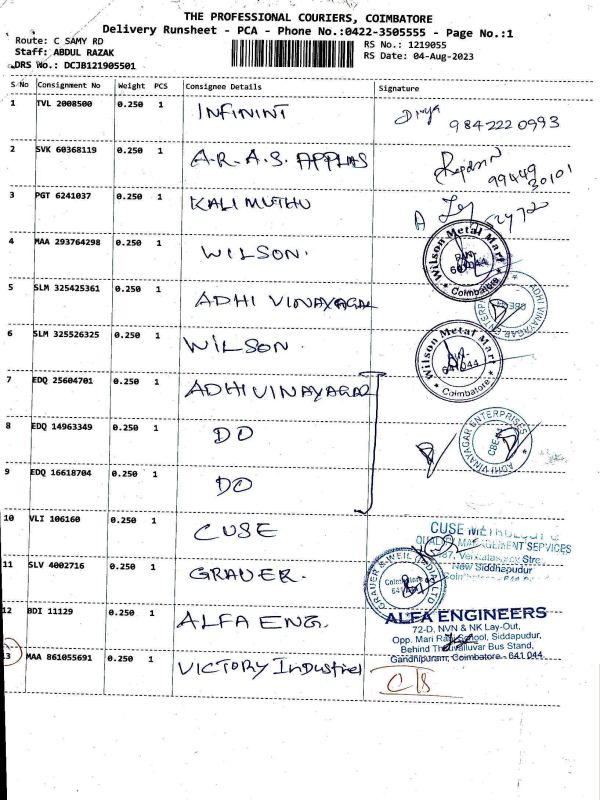 THE PROFESSIONAL COURIERS, COIMBATORE
Delivery Runsheet - PCA - Phone No.:0422-3505555 - Page No.:1
Route: C SAMY RD
Staff: ABDUL RAZAK
DRS No.: DCJB121905501
RS No.: 1219055
RS Date: 04-Aug-2023
S/No Consignment No Weight PCS Consignee Details Signature
1 TVL 2008500 0.250 1 INFININT Divya 9842220993
2 SVK 60368119 0.250 1 A.R.A.S. APPLAS 99449 30101
3 PGT 6241037 0.250 1 KALIMUTHU
4 MAA 293764298 0.250 1 WILSON. Wilson Metal Mart 641044 Coimbatore
5 SLM 325425361 0.250 1 ADHI VINAYAGAR ADHI VINAYAGAR ENTERPRISES
6 SLM 325526325 0.250 1 WILSON. Wilson Metal Mart PIN- 641044 Coimbatore
7 EDQ 25604701 0.250 1 ADHI VINAYAGAR
8 EDQ 14963349 0.250 1 DO ADHI VINAYAGAR ENTERPRISES
9 EDQ 16618704 0.250 1 DO
10 VLI 106160 0.250 1 CUSE CUSE METROLOGY &
QUALITY MANAGEMENT SERVICES
New Siddhapudur
11 SLV 4002716 0.250 1 GRAUER. GRAUER & WEIL (INDIA) LTD Coimbatore
12 BDI 11129 0.250 1 ALFA ENG. ALFA ENGINEERS
72-D, NVN & NK Lay-Out,
Opp. Mari Rani School, Siddapudur,
Behind Thiruvalluvar Bus Stand,
Gandhipuram, Coimbatore - 641 044
13 MAA 861055691 0.250 1 VICTORY Industries